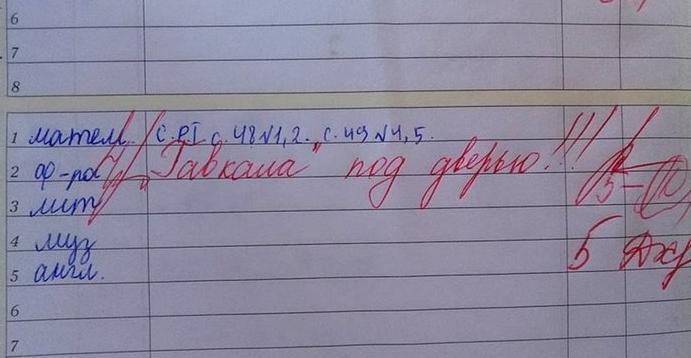 6
7
8
1 матем. С.РТ с. 48 №1,2. с. 49 №4,5.
2 ф-ра "Гавкала" под дверью!!!
3 лит 5-
4 муз 5
5 англ.
6
7